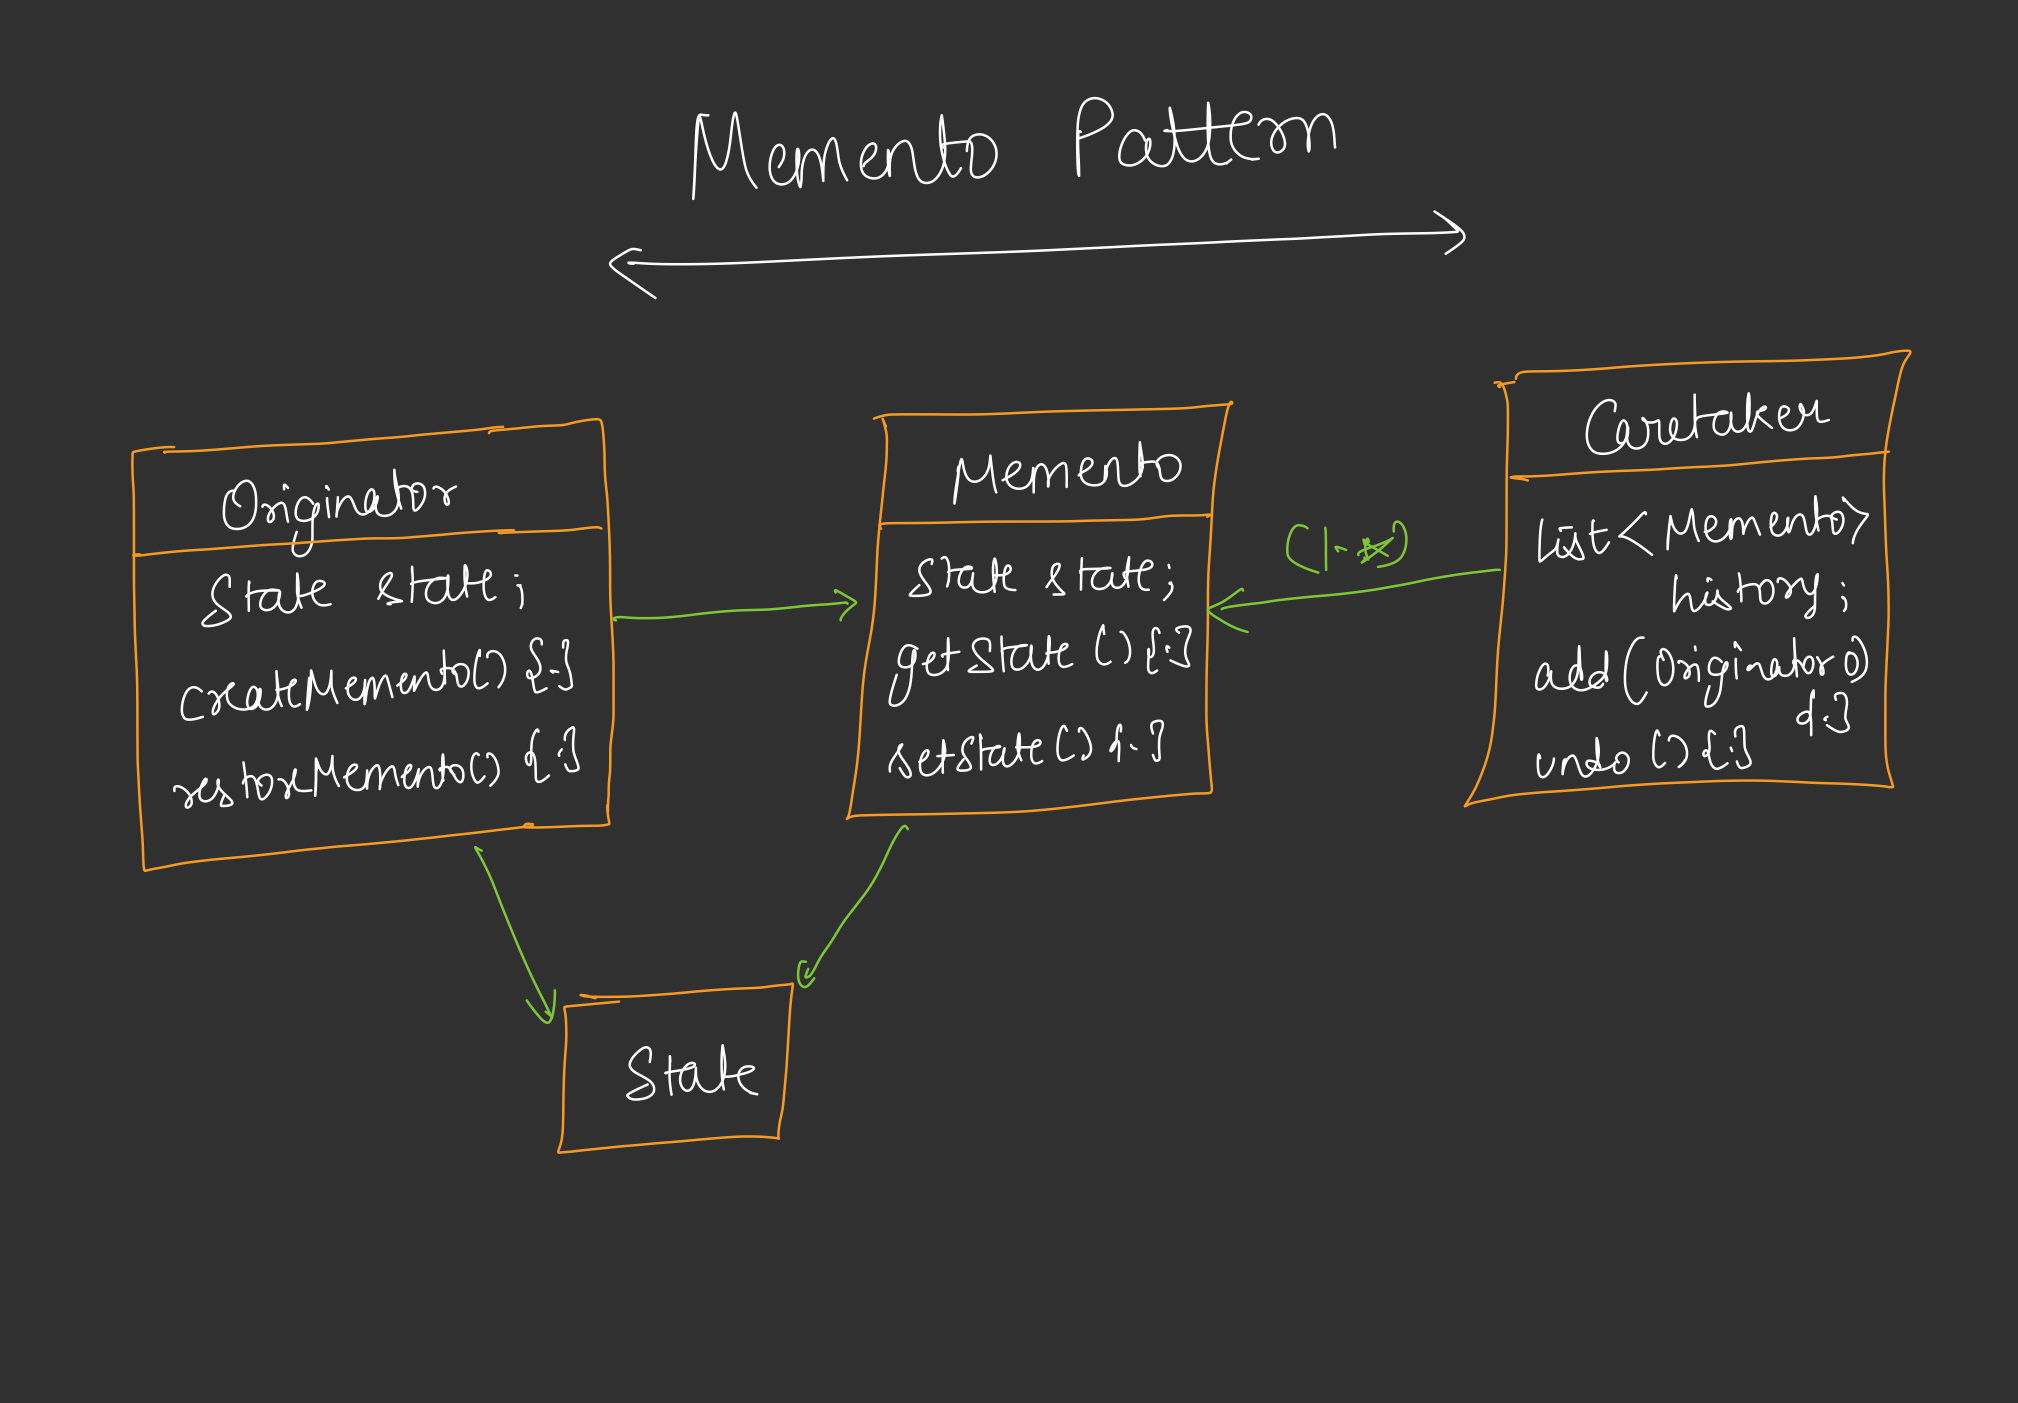 Memento Pattern
Originator
State state;
createMemento() {.}
restoreMemento() {.}
Memento
State state;
getState () {.}
setState () {.}
(1-*)
Caretaker
List<Memento>
history;
add(Originator o)
{.}
undo () {.}
State